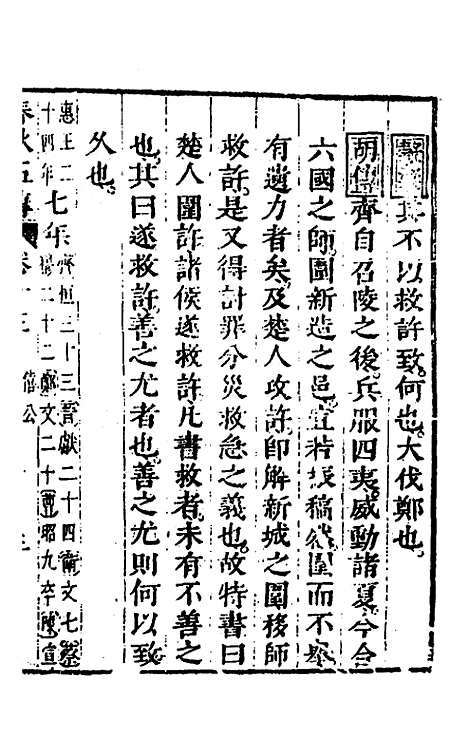 其不以救許致。何也。大伐鄭也。
胡傳齊自召陵之後。兵服四夷。威動諸夏。今合
六國之師。圍新造之邑。宜若振槁。然圍而不舉
有遺力者矣。及楚人攻許。即解新城之圍。移師
救許。是又得討罪分災救急之義也。故特書曰
楚人圍許。諸侯遂救許。凡書救者。未有不善之
也。其曰遂救許。善之尤者也。善之尤則何以致
久也。
惠王二十四年七年齊桓三十三晉獻二十四衛文七蔡
穆二十二鄭文二十曹昭九卒陳宣
春秋五傳 卷十三 僖公